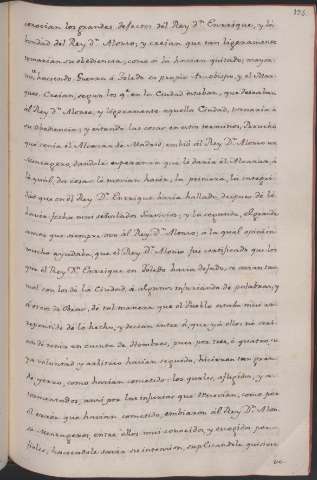 176.
conocian los grandes defectos del Rey Dn. Enrrique, y la
bondad del Rey Dn. Alonso, y creian que tan ligeramente
tomarian su obediencia, como se la havian quitado, mayor-
mte. haciendo Guerra á Toledo su propio Arzobispo, y el
ques. Creian, segun los qe. en la Ciudad estaban, que deseaban
al Rey Dn. Alonso, y ligeramente aquella Ciudad, tornaria á
su obediencia; y estando las cosas en estos terminos, Perucho
que tenia el Alcazar de Madrid, embió al Rey Dn. Alonso un
Mensagero, dandole esperanza que le daria el Alcazar, á
lo qual, dos cosas le movian hacer, la primera, la
que en el Rey Dn. Enrrique havia hallado, despues de le
haver fecho mui señalados Servicios, y la segunda, el grande
amor que siempre tuvo al Rey Dn. Alonso; a la qual
mucho ayudaba, que el Rey Dn. Alonso fue certificado que los
que el Rey Dn. Enrrique en Toledo havia dejado, se havian tan
mal con los de la Ciudad, á algunos injuriando de palabras, y
á otros de Obras, de tal manera que el Pueblo estaba mui ar-
repentido de lo hecho, y decian entre sí, que yá ellos no
de tenerse en cuenta de Hombres, pues por tres, ó quatro, cu-
ya voluntad y arbitrio havian seguido, hicieron tan gran-
de yerro, como havian cometido: los quales, aflijidos, y a-
tormentados, assi por las injurias que recevian, como por
el error que havian cometido, embiaron al Rey Dn. Alon-
so Mensageros, entre ellos mui conocidos, y escogidos, por
haciendole saver su intencion, suplicandole quisiese